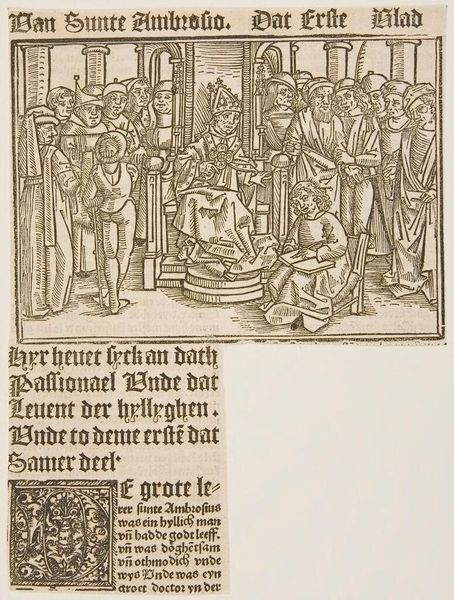 Van Sunte Ambrosio. Dat Erste Blad
Hyr hevet syck an dath
Passionael Unde dat
Levent der hyllyghen.
Unde to deme erstē dat
Samer deel.
DE grote le-
rer sunte Ambrosius
was ein hyllich man
vñ hadde godt leeff.
vñ was dōghētsam
vñ othmodich vnde
wys Unde was eyn
groet doctor yn der